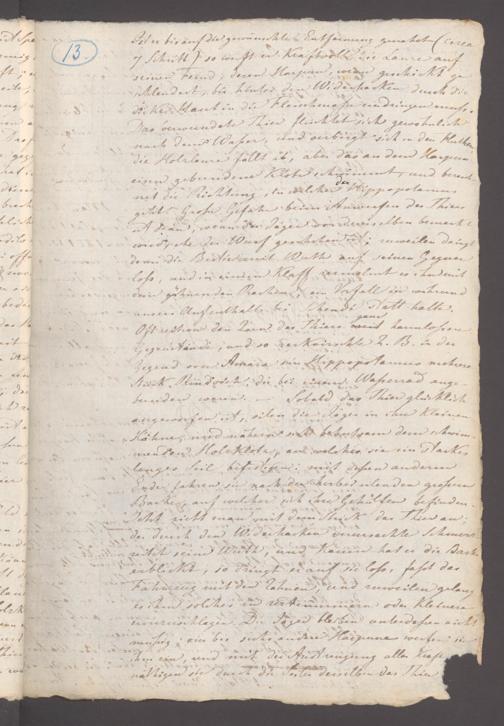 13.
ist er bis auf die gewünschte Entfernung genahet (circa
7 Schritt) so wirft er kraftvoll die Lanze auf
seinen Feind, deren Harpune, wenn geschickt ge
schleudert, bis hinter den Widerhacken durch die
dicke Haut in die Fleischmasse eindringen muss.
Das verwundete Thier flüchtet sich gewöhnlich
nach dem Wasser, und verbirgt sich in den Fluthen
die Holzlanze fällt ab, aber das an dem Harpun
eisen gebundene Klotz schwimmt, und bezeich
net die Richtung, in welcher der Hippopotamus
geht. Grosse Gefahr beim Anwerfen des Thiers
ist da, wenn der Jäger von demselben bemerkt
wird, ehe der Wurf geschehen ist; zuweilen dringt
dann die Bestie mit Wuth auf seinen Gegner
loss, und in einem Klaff zermalmt es ihn mit
dem gähnenden Rachen, ein Vorfall der während
unsers Aufenthalts bei Shendi statt hatte.
Oft reitzen den Zorn des Thiers ganz harmlose
Gegenstände, und so zerknirschte z. B. in der
Gegend von Amara ein Hippopotamus mehrere
Stück Rindvieh, die bei einem Wasserrad ange
bunden waren. — Sobald das Thier glücklich
angeworfen ist, eilen die Jäger in ihre kleinen
Kähne, und nähern sich behutsam dem schwim
menden Holzklotz, an welchen sie ein starkes
langes Seil befestigen; mit dessen anderen
Ende fahren sie nach der herbei eilenden grossen
Barke, auf welcher sich ihre Gehülfen befinden.
Jetzt zieht man mit dem Strick das Thier an;
der durch den Widerhacken verursachte Schmerz
reitzt seine Wuth, und kaum hat es die Barke
erblickt, so dringt es auf sie loss, fasst das
Fahrzeug mit den Zähnen, und zuweilen gelang
es ihm solches zu zertrümmern oder kleinere
umzuschlagen. Die Jäger bleiben unterdessen nicht
müssig; ein bis sechs andere Harpune werfen sie
ihm ein, und mit der Anstrengung aller Kräfte
nöthigen sie durch die Seile derselben das Thier